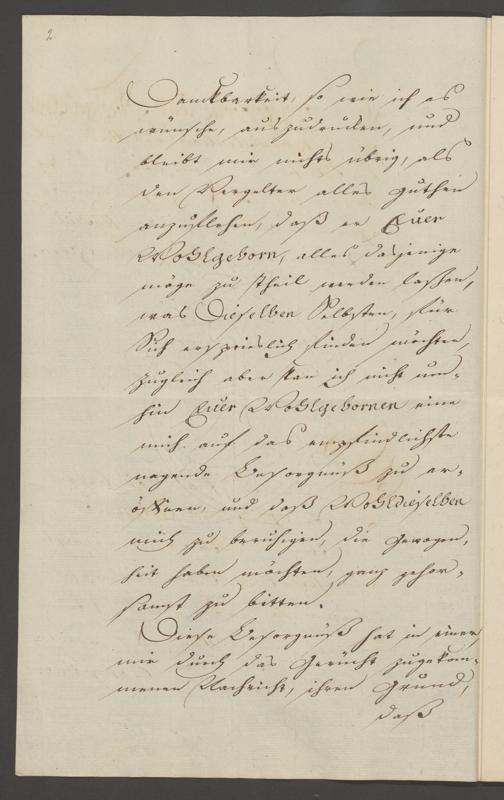 2.
Danckbarkeit, so wie ich es
wünsche, auszudrucken, und
bleibt mir nichts übrig, als
den Vergelter alles guthen
anzuflehen, daß er Euer
Wohlgeborn, alles dasjenige
möge zu theil werden laßen,
was Dieselben Selbsten, für
Sich ersprieslich finden möchten,
zugleich aber kan ich nicht um-
hin Euer Wohlgebornen eine
mich auf das empfindlichste
nagende Besorgnüß zu er-
öffnen, und daß Wohldieselben
mich zu beruhigen, die Gewogen,
heit haben möchten, ganz gehor-
samst zu bitten.
Diese Besorgnüß hat in einer
mir durch das Gerücht zugekom-
menen Nachricht, ihren Grund,
daß